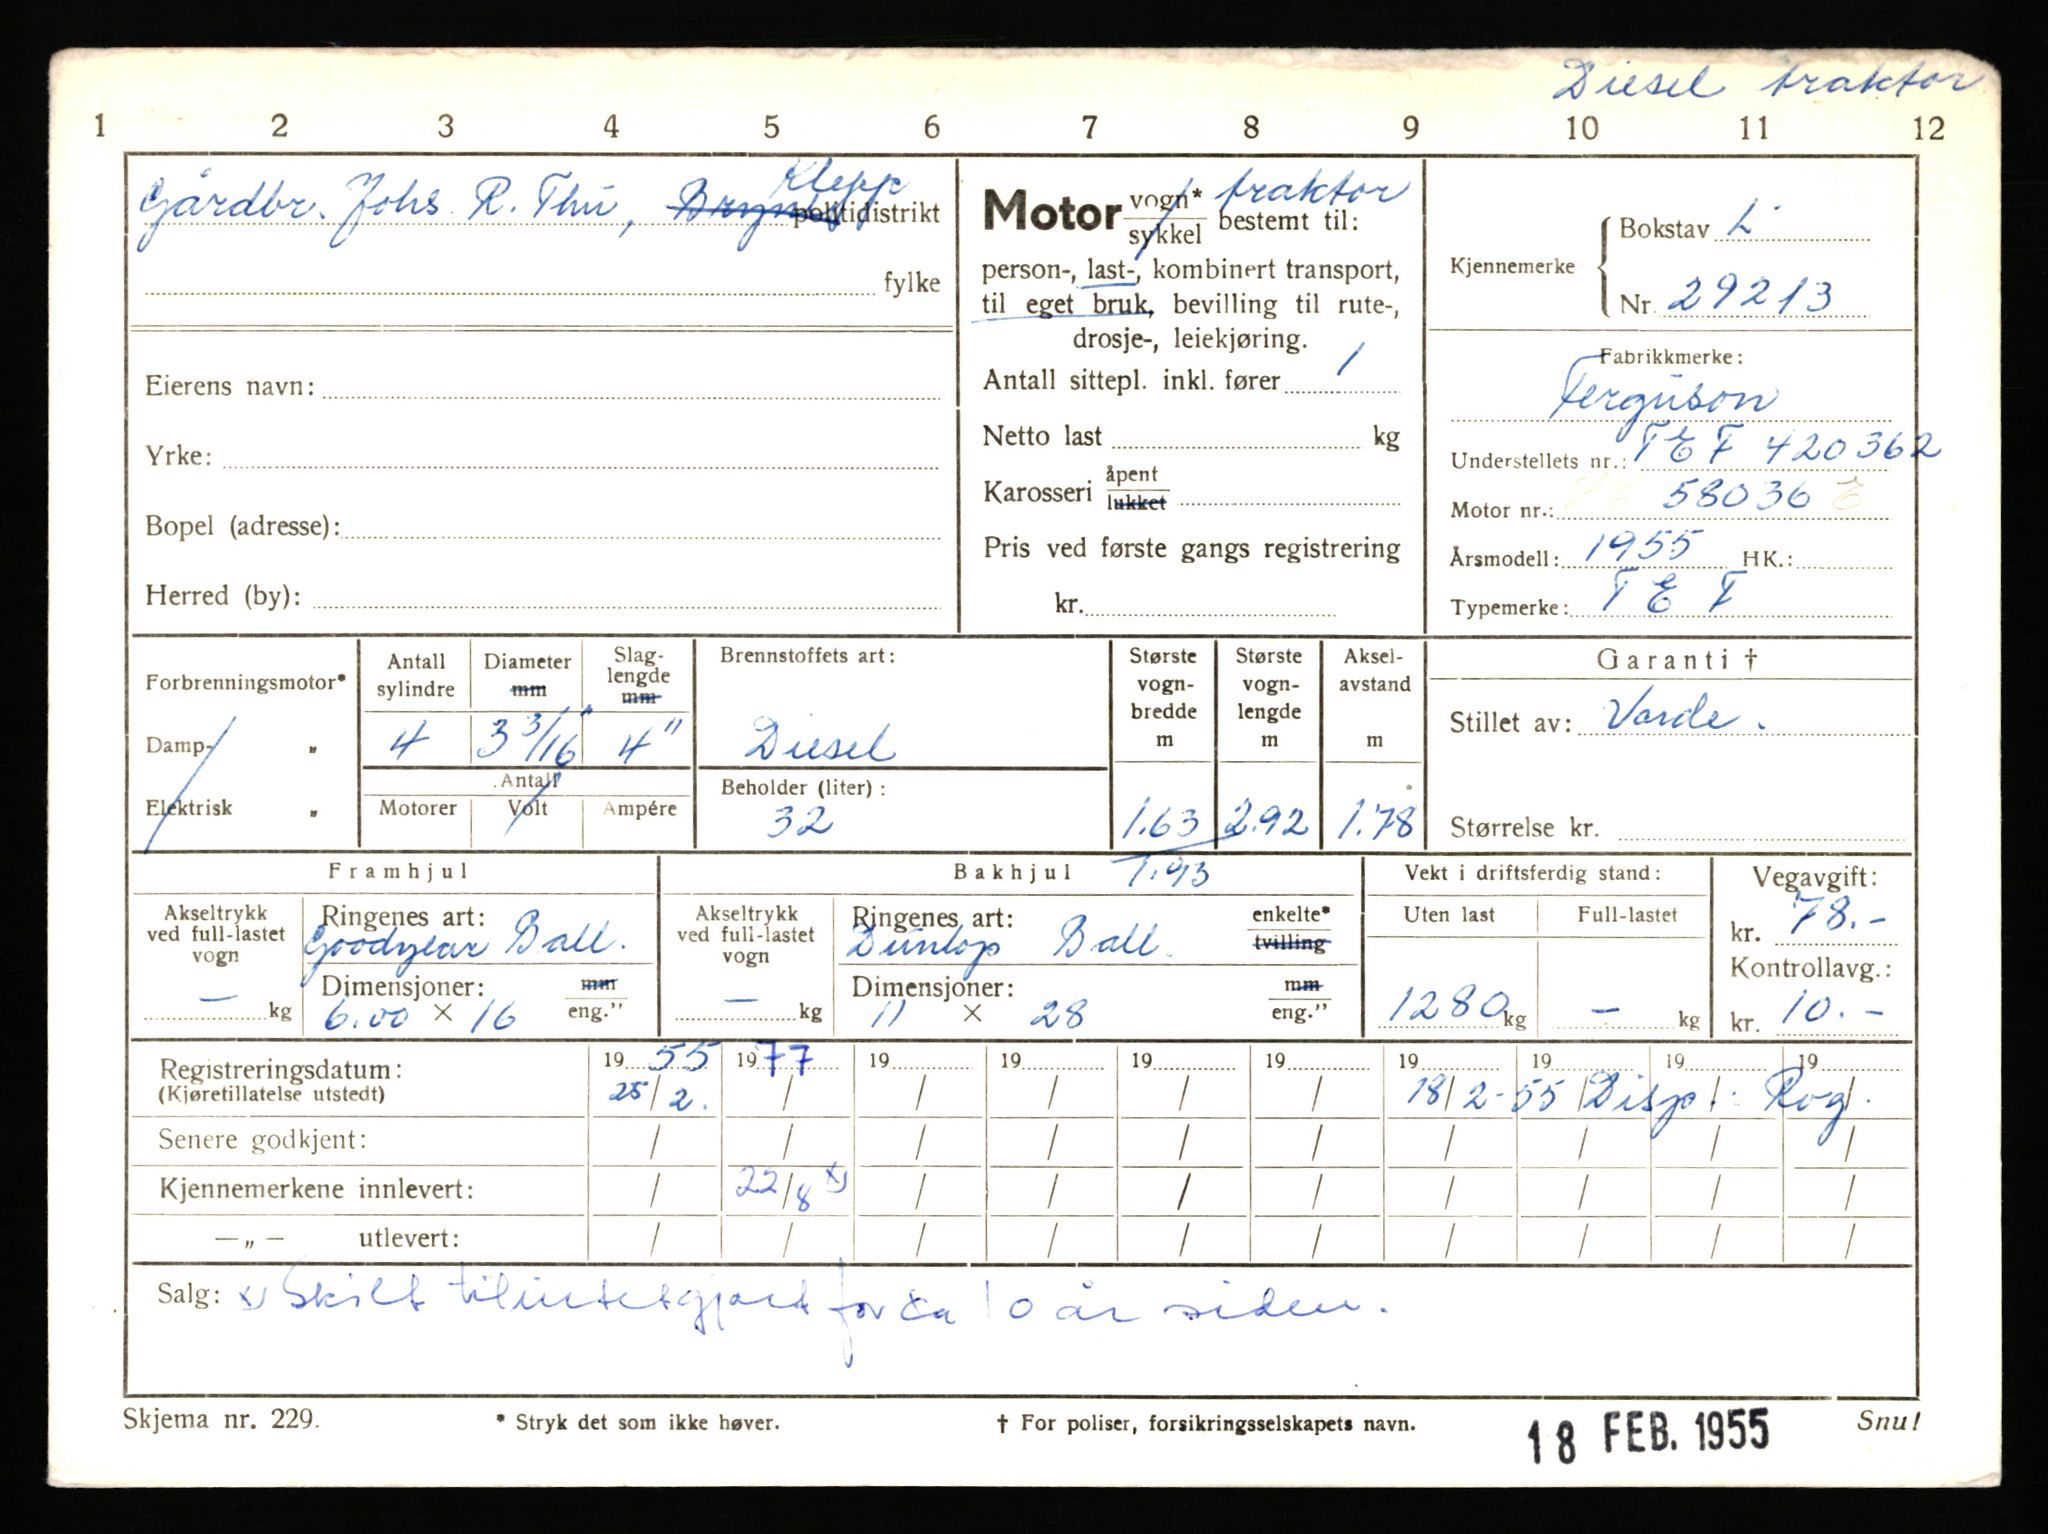 Diesel traktor
1 2 3 4 5 6 7 8 9 10 11 12
Klepp
Gårdbr. Johs R. Thu, politidistrikt
fylke
Eierens navn:
Yrke:
Bopel (adresse):
Herred (by):
Motor vogn* / sykkel traktor bestemt til:
person-, last-, kombinert transport,
til eget bruk, bevilling til rute-,
drosje-, leiekjøring.
Antall sittepl. inkl. fører 1
Netto last kg
Karosseri åpent / lukket
Pris ved første gangs registrering
kr.
Kjennemerke
Bokstav L
Nr. 29213
Fabrikkmerke:
Ferguson
Understellets nr.: TEF 420362
Motor nr.: 58036 E
Årsmodell: 1955 HK.:
Typemerke: TEF
Forbrenningsmotor*
Damp- "
Elektrisk "
Antall sylindre 4
Diameter mm 3 3/16"
Slaglengde mm 4"
Antall
Motorer Volt Ampére
Brennstoffets art:
Diesel
Beholder (liter):
32
Største vognbredde m 1.63
Største vognlengde m 2.92
Akselavstand m 1.78
1.93
Garanti †
Stillet av: Varde.
Størrelse kr.
Framhjul
Akseltrykk ved full-lastet vogn
— kg
Ringenes art:
Goodyear Ball.
Dimensjoner: mm
6.00 × 16 eng."
Bakhjul
Akseltrykk ved full-lastet vogn
— kg
Ringenes art: enkelte*
Dunlop Ball. tvilling
Dimensjoner: mm
11 × 28 eng."
Vekt i driftsferdig stand:
Uten last Full-lastet
1280 kg — kg
Vegavgift:
kr. 78.-
Kontrollavg.:
kr. 10.-
Registreringsdatum: 19 55 19 77 19 19 19 19 19 19 19 19
(Kjøretillatelse utstedt) 25/2. / / / / / 18/2-55 Disp.: Rog.
Senere godkjent: / / / / / / / / / /
Kjennemerkene innlevert: / 22/8 x) / / / / / / / /
—„— utlevert: / / / / / / / / / /
Salg: x) Skilt tilintetgjort for ca 10 år siden.
Skjema nr. 229. * Stryk det som ikke høver. † For poliser, forsikringsselskapets navn. Snu!
18 FEB. 1955